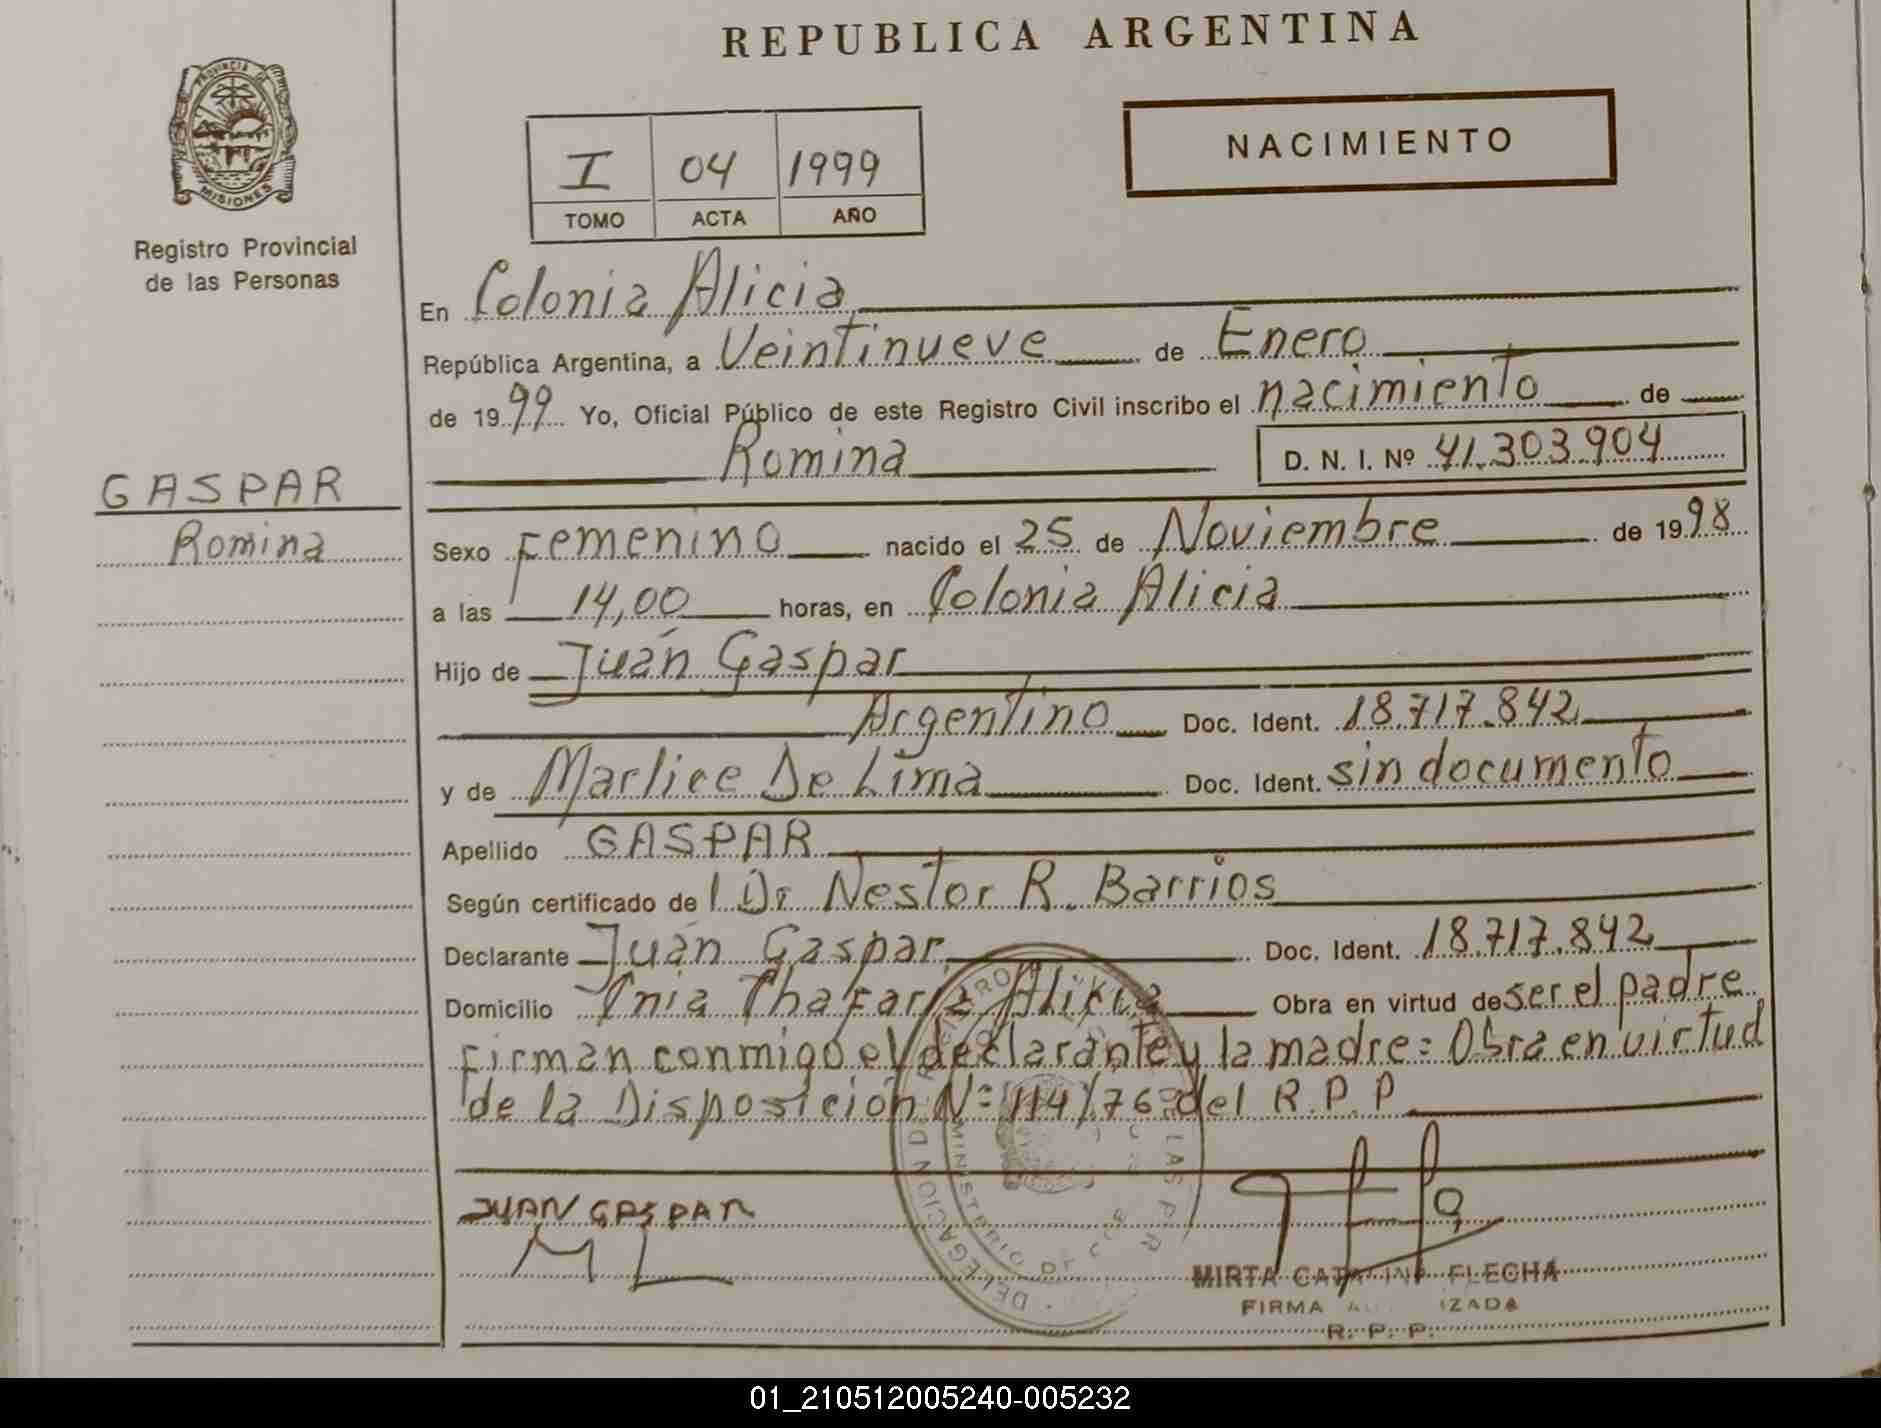 REPUBLICA ARGENTINA
PROVINCIA DE
MISIONES
Registro Provincial
de las Personas
I 04 1999
TOMO ACTA AÑO
NACIMIENTO
En Colonia Alicia
República Argentina, a Veintinueve de Enero
de 1999 Yo, Oficial Público de este Registro Civil inscribo el nacimiento de
Romina D. N. I. Nº 41.303.904
GASPAR
Romina
Sexo Femenino nacido el 25 de Noviembre de 1998
a las 14,00 horas, en Colonia Alicia
Hijo de Juán Gaspar
Argentino Doc. Ident. 18.717.842
y de Marlice De Lima Doc. Ident. sin documento
Apellido GASPAR
Según certificado de l Dr Nestor R. Barrios
Declarante Juán Gaspar Doc. Ident. 18.717.842
Domicilio Alicia Obra en virtud de ser el padre
Firman conmigo el declarante y la madre = Obra en virtud
de la Disposición Nº 114/76 del R.P.P
JUAN GASPAR
M L
DELEGACION
MINISTERIO DE
MIRTA CATALINA FLECHA
FIRMA AUTORIZADA
R. P. P.
01_210512005240-005232